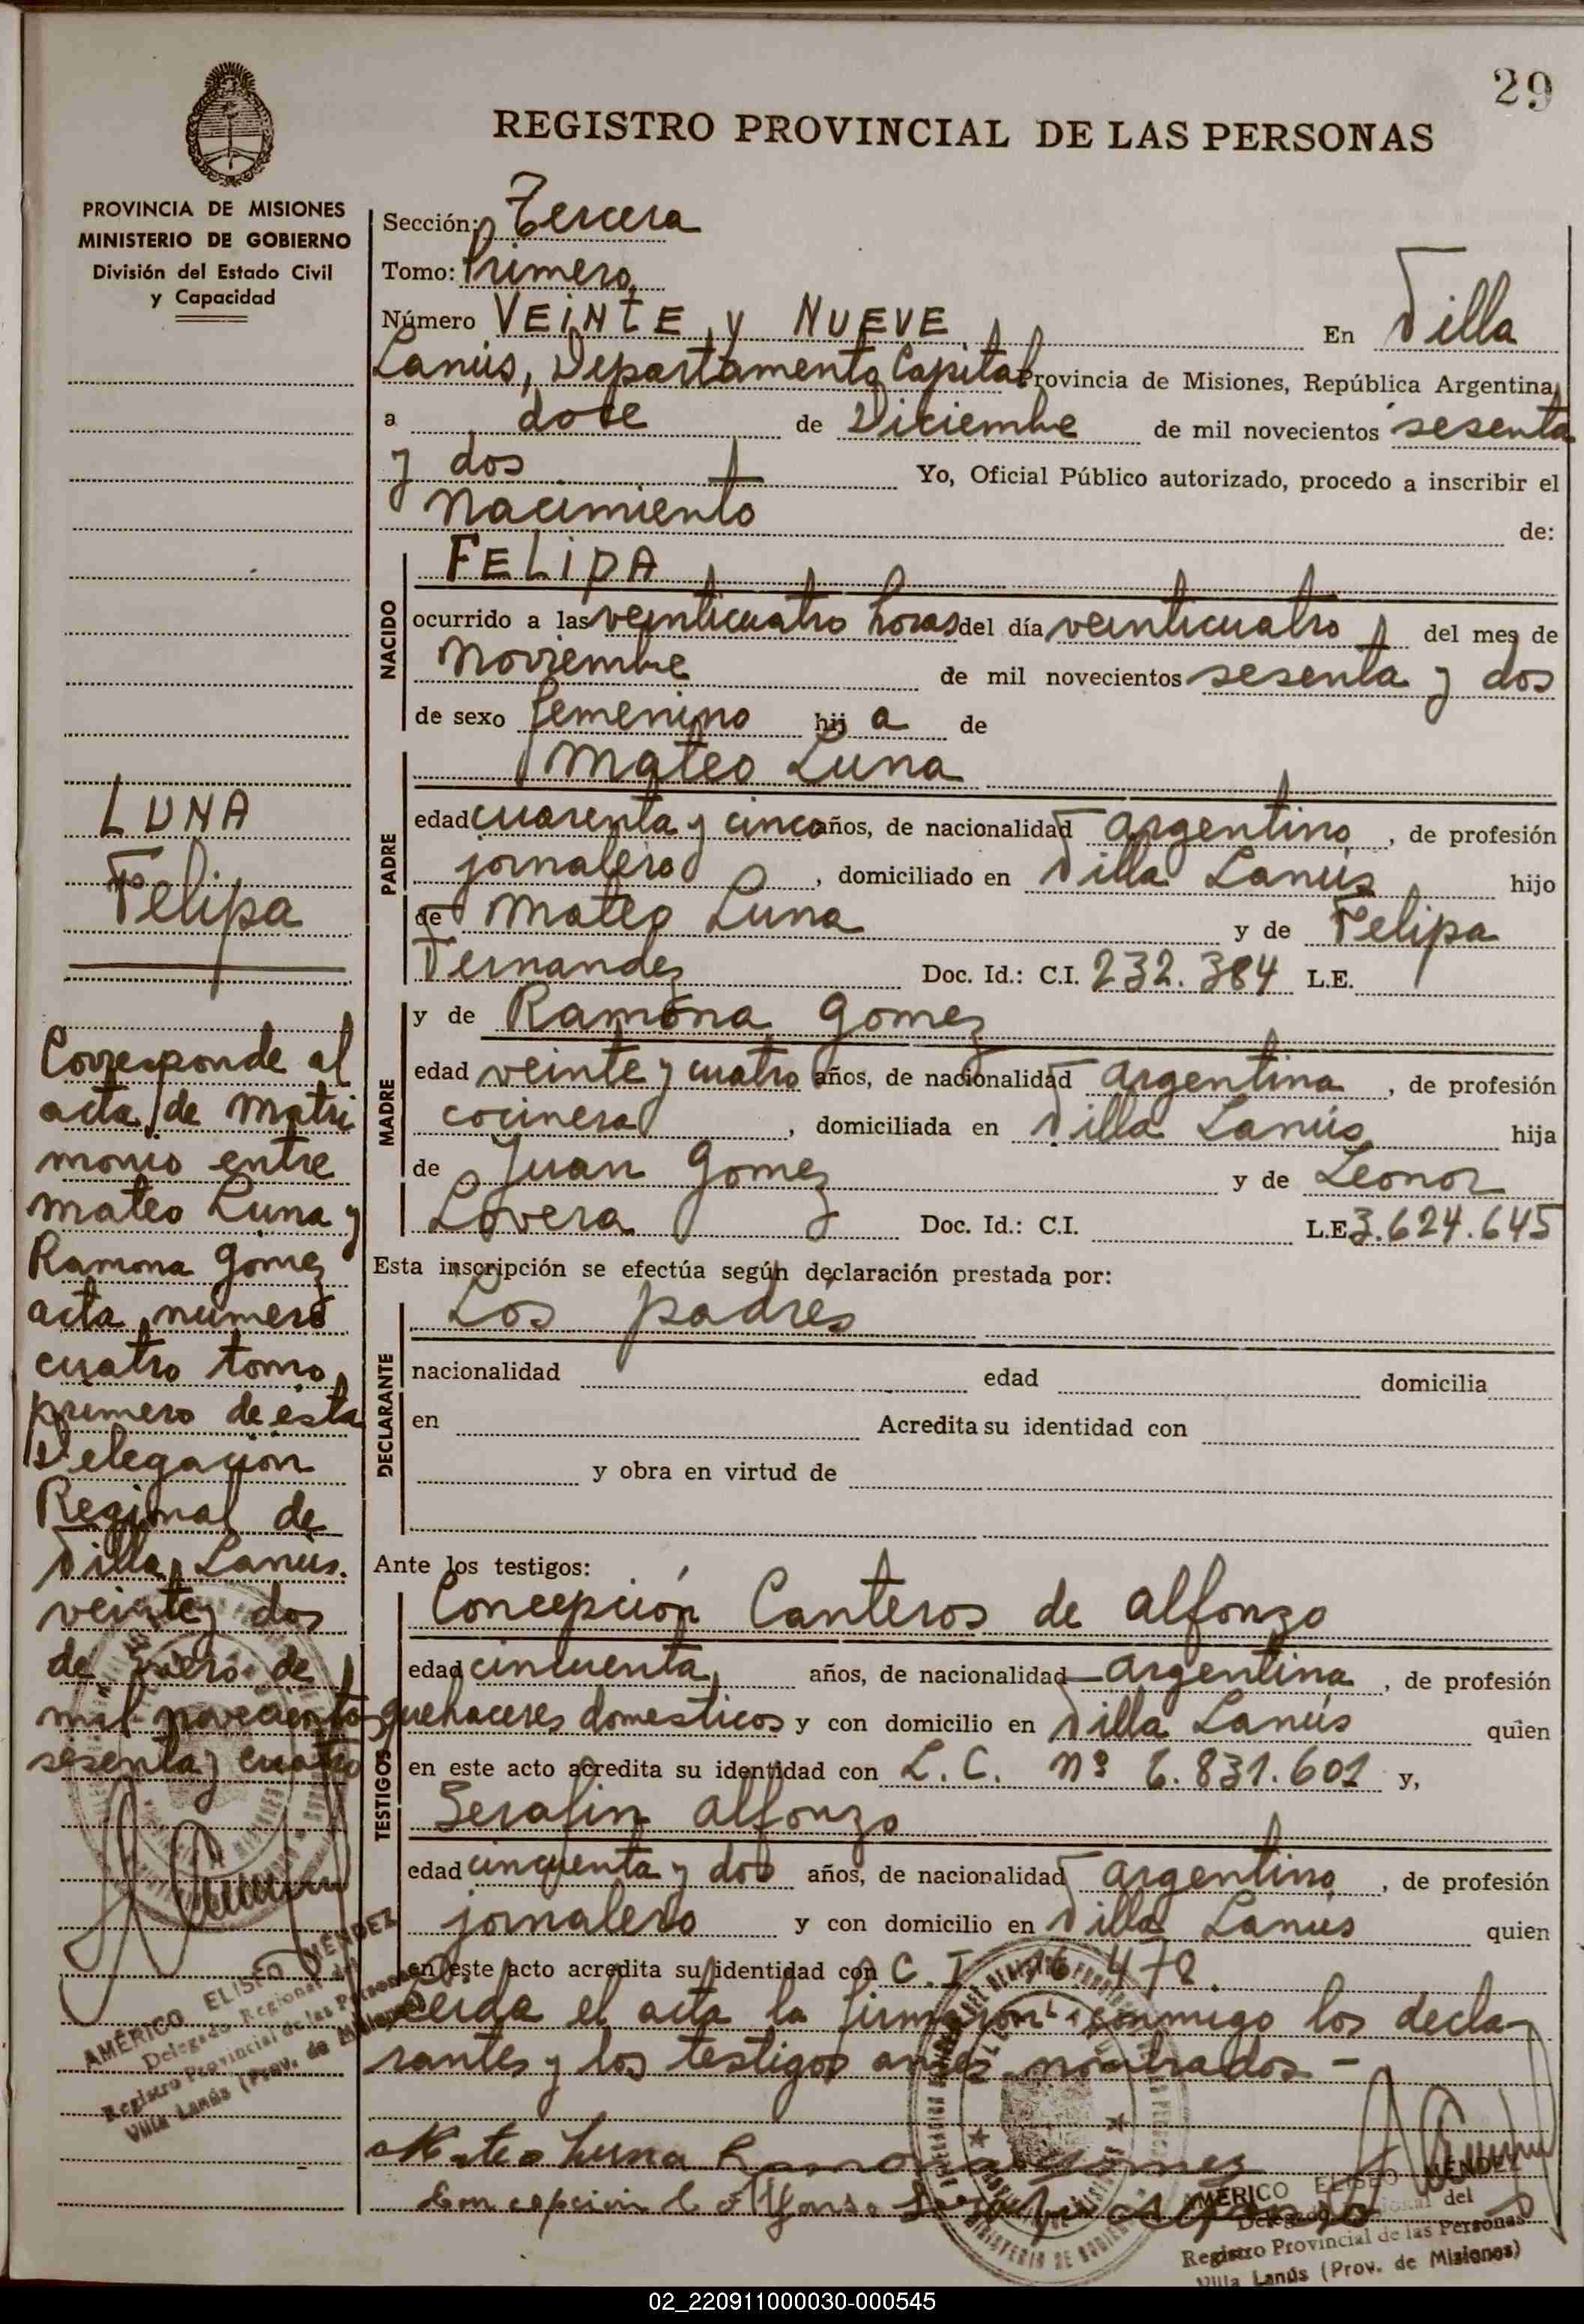 29
REGISTRO PROVINCIAL DE LAS PERSONAS
PROVINCIA DE MISIONES
MINISTERIO DE GOBIERNO
División del Estado Civil
y Capacidad
LUNA
Felipa
Corresponde al
acta de Matri
monio entre
Mateo Luna y
Ramona Gomez
acta numero
cuatro tomo
primero de esta
Delegacion
Regional de
Villa Lanús.
veinte y dos
de Enero de
mil novecientos
sesenta y cuatro
AMÉRICO ELISEO MÉNDEZ
Delegado Regional del
Registro Provincial de las Personas
Villa Lanús (Prov. de Misiones)
Sección: Tercera
Tomo: Primero
Número VEINTE y NUEVE En Villa
Lanús, Departamento Capital Provincia de Misiones, República Argentina,
a doce de Diciembre de mil novecientos sesenta
y dos Yo, Oficial Público autorizado, procedo a inscribir el
Nacimiento de:
NACIDO
FELIPA
ocurrido a las veinticuatro horas del día veinticuatro del mes de
Noviembre de mil novecientos sesenta y dos
de sexo femenino hij a de
PADRE
Mateo Luna
edad cuarenta y cinco años, de nacionalidad argentino, de profesión
jornalero, domiciliado en Villa Lanús hijo
de Mateo Luna y de Felipa
Fernandez Doc. Id.: C.I. 232.384 L.E.
MADRE
y de Ramona Gomez
edad veinte y cuatro años, de nacionalidad argentina, de profesión
cocinera, domiciliada en Villa Lanús hija
de Juan Gomez y de Leonor
Lovera Doc. Id.: C.I. L.E. 3.624.645
Esta inscripción se efectúa según declaración prestada por:
DECLARANTE
Los padres
nacionalidad edad domicilia
en Acredita su identidad con
y obra en virtud de
Ante los testigos:
TESTIGOS
Concepción Canteros de Alfonzo
edad cincuenta años, de nacionalidad argentina, de profesión
quehaceres domesticos y con domicilio en Villa Lanús quien
en este acto acredita su identidad con L.C. Nº 6.831.601 y,
Serafin Alfonzo
edad cincuenta y dos años, de nacionalidad argentino, de profesión
jornalero y con domicilio en Villa Lanus quien
en este acto acredita su identidad con C.I. 478.
Leida el acta la firmaron conmigo los decla-
rantes y los testigos antes nombrados -
Mateo Luna Ramona Gomez
Concepcion C de Alfonso Serafin Alfonzo
AMÉRICO ELISEO MÉNDEZ
Delegado Regional del
Registro Provincial de las Personas
Villa Lanús (Prov. de Misiones)
02_220911000030-000545